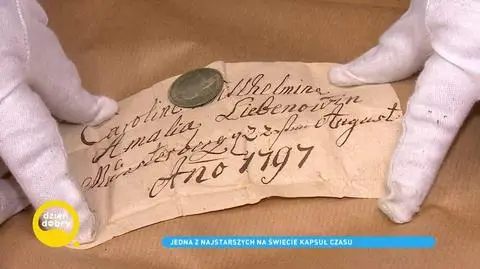 Caroline Wilhelmina
Amalia Liebenowin
Münsterberg August
Ano 1797
dzień
dobry
JEDNA Z NAJSTARSZYCH NA ŚWIECIE KAPSUŁ CZASU